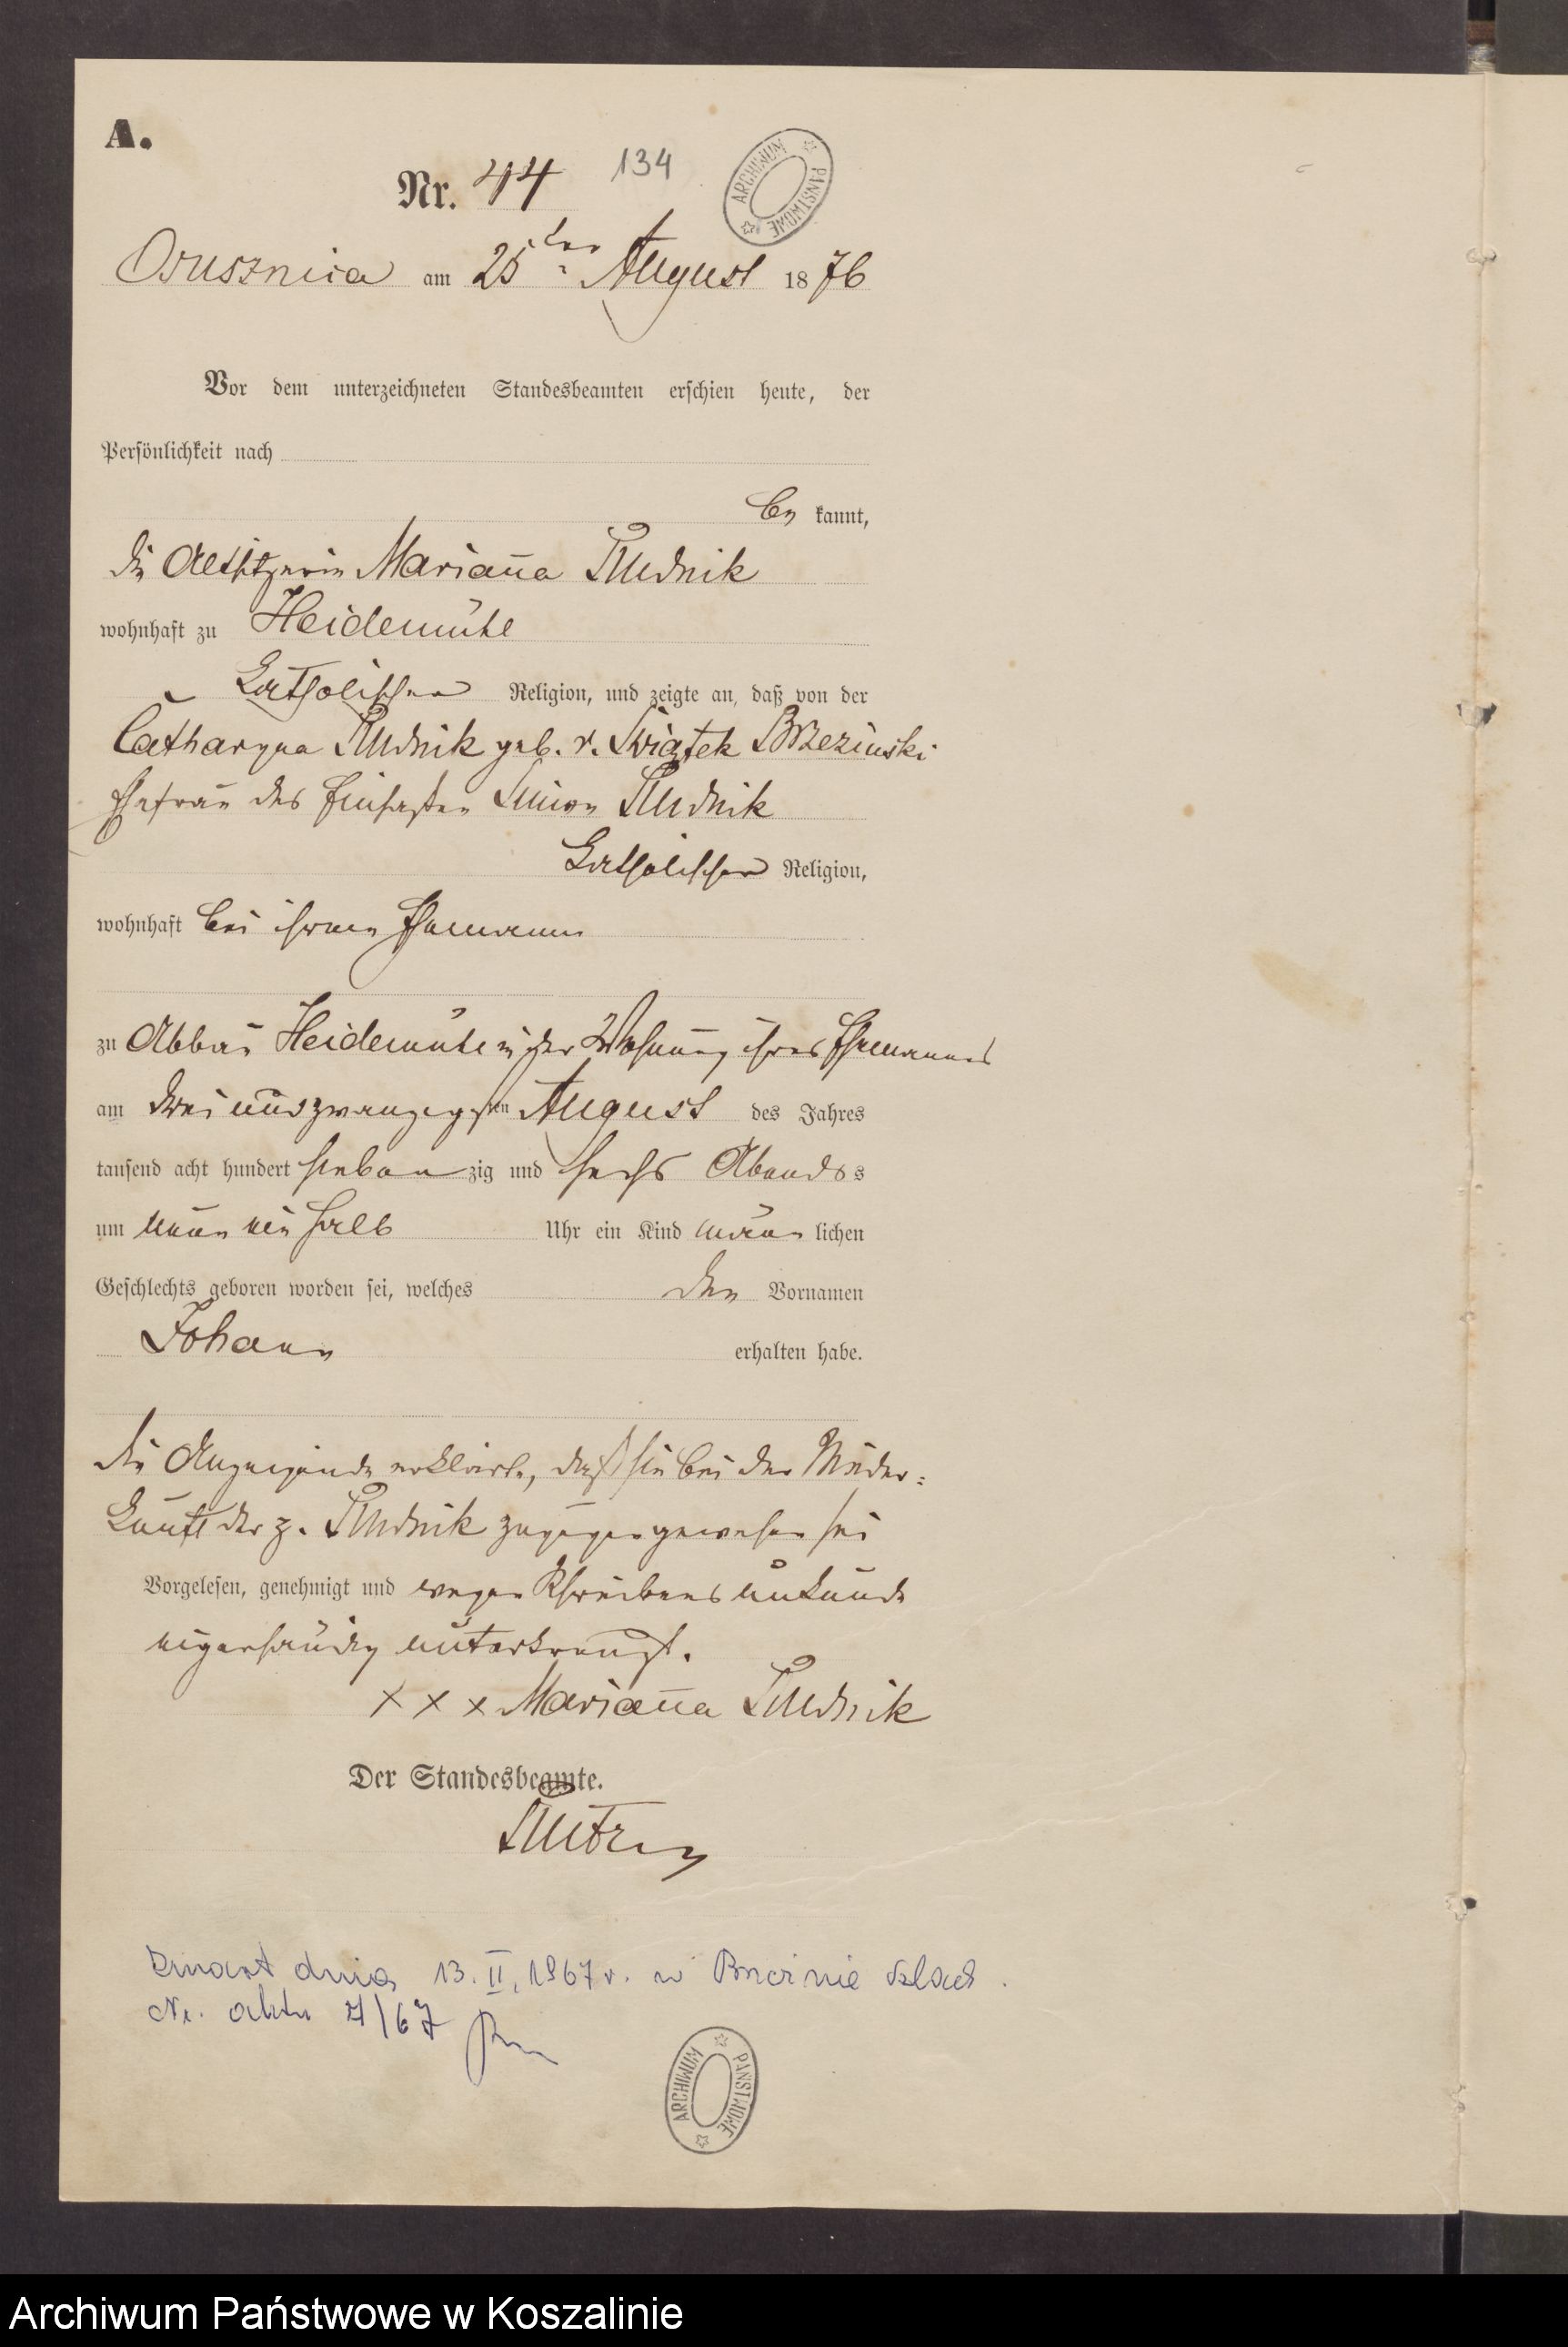 A.
Nr. 44 134
ARCHIWUM PAŃSTWOWE
Osusznica am 25ten August 1876
Vor dem unterzeichneten Standesbeamten erschien heute, der
Persönlichkeit nach
be kannt,
die Altsitzerin Marianna Rudnik
wohnhaft zu Heidemühl
katholischer Religion, und zeigte an, daß von der
Catharyna Rudnik geb. v. Swiątek Brzezinski
Ehefrau des Einsassen Simon Rudnik
katholischer Religion,
wohnhaft bei ihrem Ehemann
zu Abbau Heidemühl in der Wohnung ihres Ehemannes
am drei und zwanzigsten August des Jahres
tausend acht hundert sieben zig und sechs Abends s
um neun ein halb Uhr ein Kind männ lichen
Geschlechts geboren worden sei, welches den Vornamen
Johann erhalten habe.
die Anzeigende erklärte, daß sie bei der Nieder-
kunft der p. Rudnik zugegen gewesen sei
Vorgelesen, genehmigt und wegen Schreibensunkunde
eigenhändig unterkreuzt.
x x x Marianna Rudnik
Der Standesbeamte.
Zmarł dnia 13.II.1967 r. w Borzyszkowy
Nr. aktu 7/67
ARCHIWUM PAŃSTWOWE
Archiwum Państwowe w Koszalinie